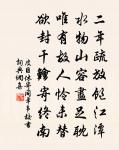 二年疏放飽江潭
水物山容盡足耽
唯有故人憐未替
欲封干鱠寄終南
皮日休寄同年韋校書
詞典網集